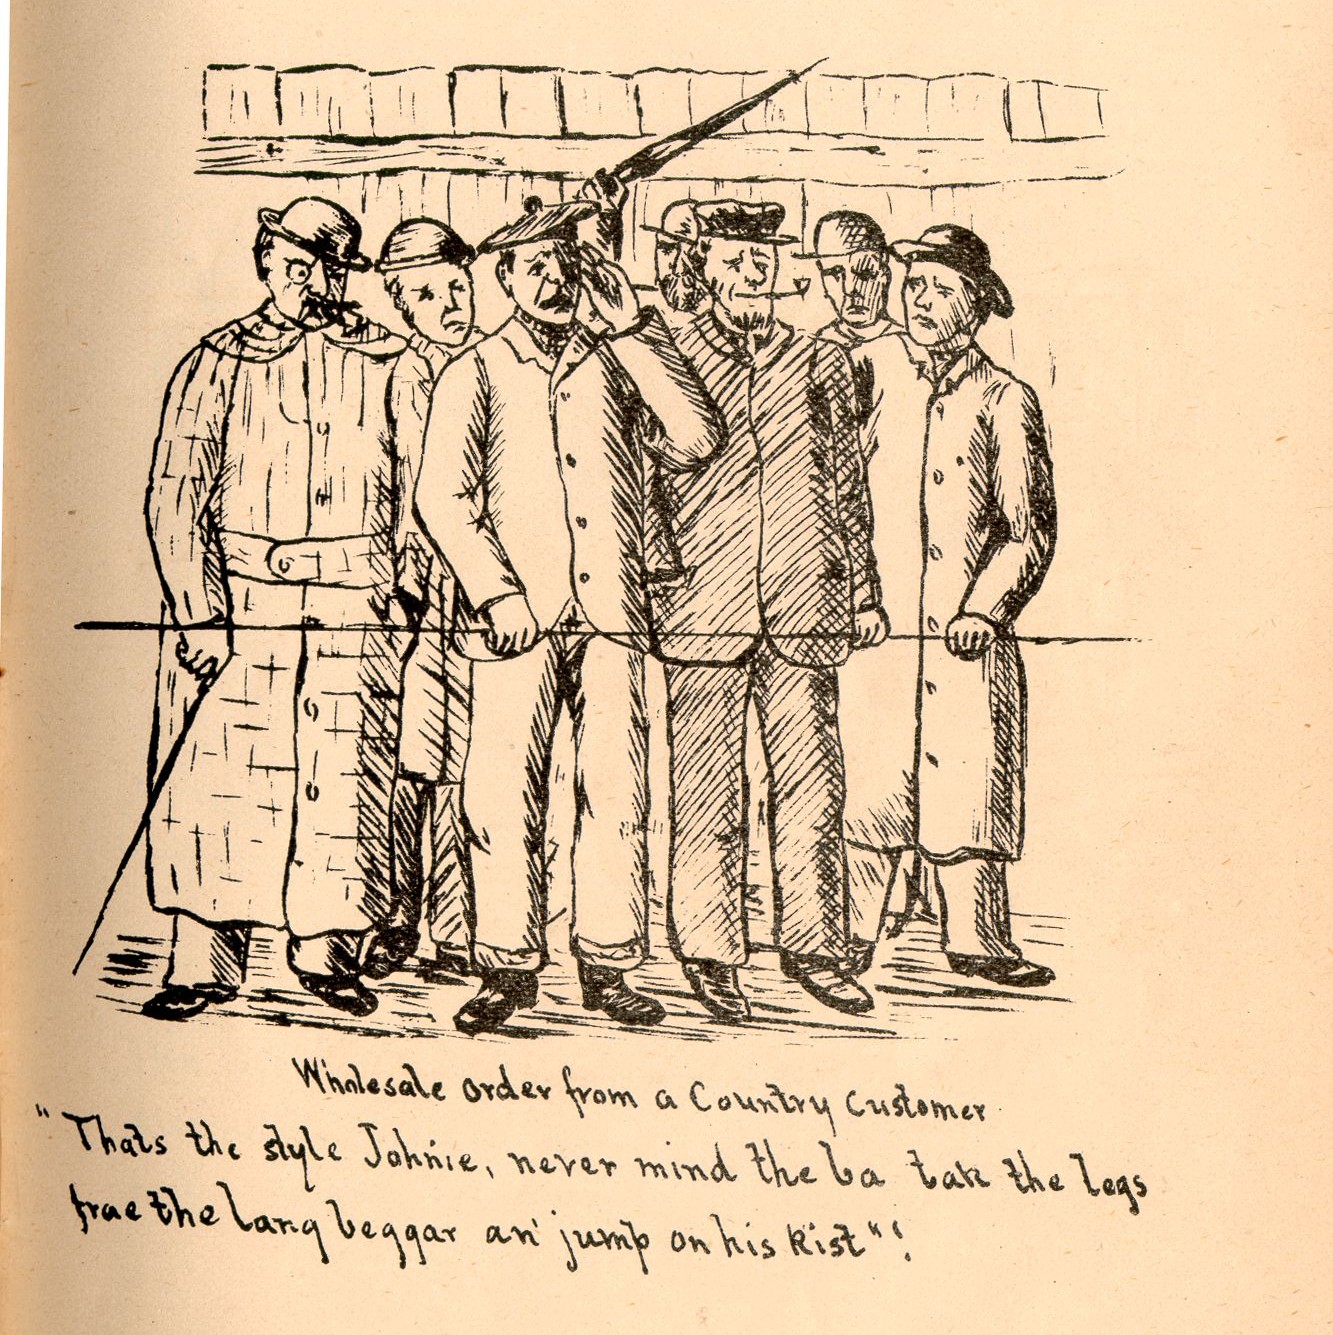 Wholesale order from a Country Customer
"Thats the style Johnie, never mind the ba tak the legs
frae the lang beggar an' jump on his kist"!